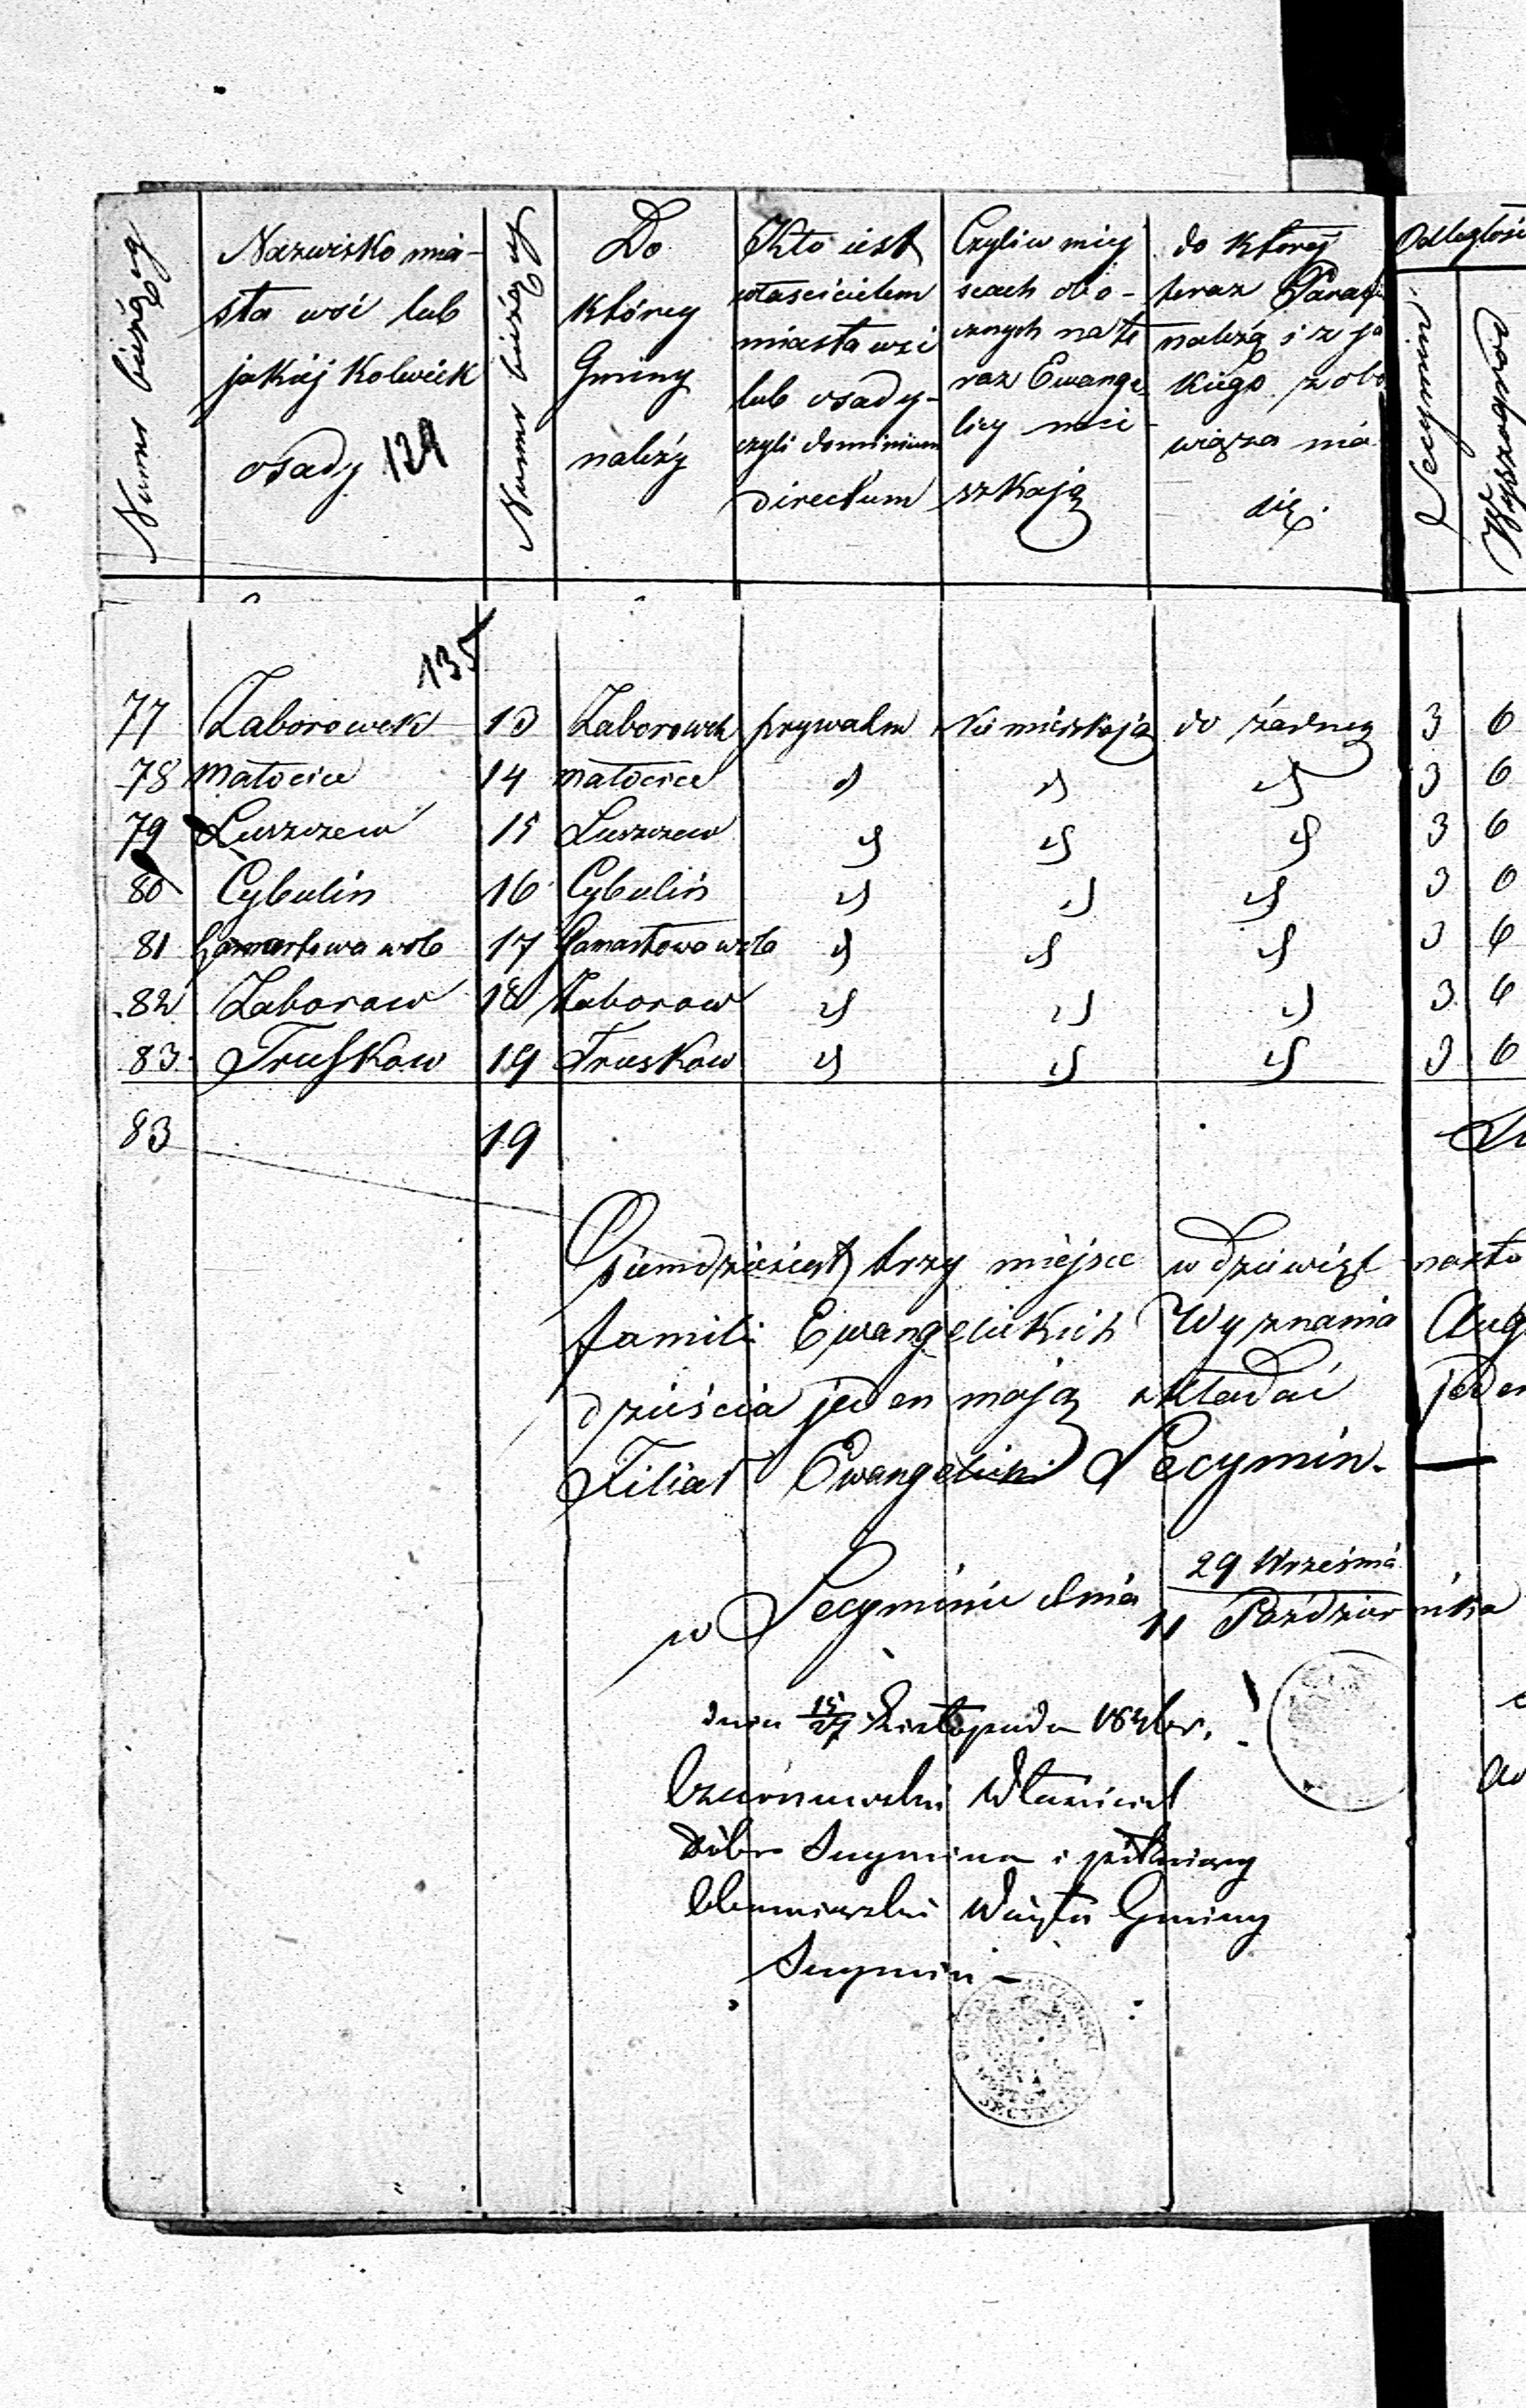 Numer bieżący
Nazwisko mia-
sta wsi lub
jakiej kolwiek
osady 129
Numer bieżący
Do
którey
Gminy
należy
Kto iest
właścicielem
miasta wsi
lub osady
czyli dominium
directum
Czyli w miey
scach obo-
cznych na te
raz Ewange
licy mie
szkają
do którey
teraz Paraf
należą i z ja
kiego zobo
wiąza nia
się.
Odległość
Secymin
Wyszogrod
135
77 Zaborowek 13 Zaborowek prywatne Nie mieszkają do żadney 3 6
78 Małocice 14 Małocice " " " 3 6
79 Luszczew 15 Luszczew " " " 3 6
80 Cybulin 16 Cybulin " " " 3 6
81 Gawartowa wola 17 Gawartowa wola " " " 3 6
82 Zaborow 18 Zaborow " " " 3 6
83 Truskaw 19 Truskaw " " " 3 6
83 19
Osiemdziesiąt trzy miejsc w dziewięt nastu
familii Ewangelickich Wyznania Aug
dzieścia jeden mają składać jeden
Filiał Ewangelicki Secymin.
w Secyminie dnia 29 Września
11 Października
dnia 15/27 Listopada 184 r.
Właściciel
Dóbr Secymina i
Wójta Gminy
Secymin